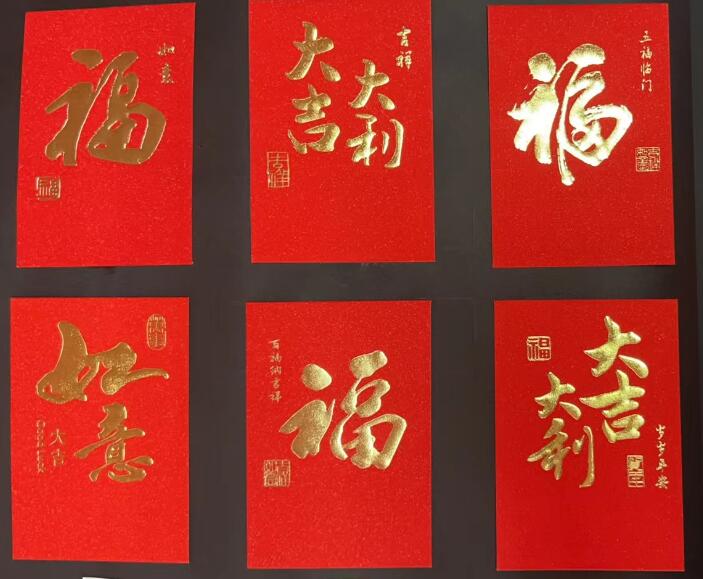 福
如意
福
大吉
大利
吉祥
吉祥
福
五福临门
如意
大吉
GOOD LUCK
福
百福纳吉祥
大吉
大利
福
岁岁平安